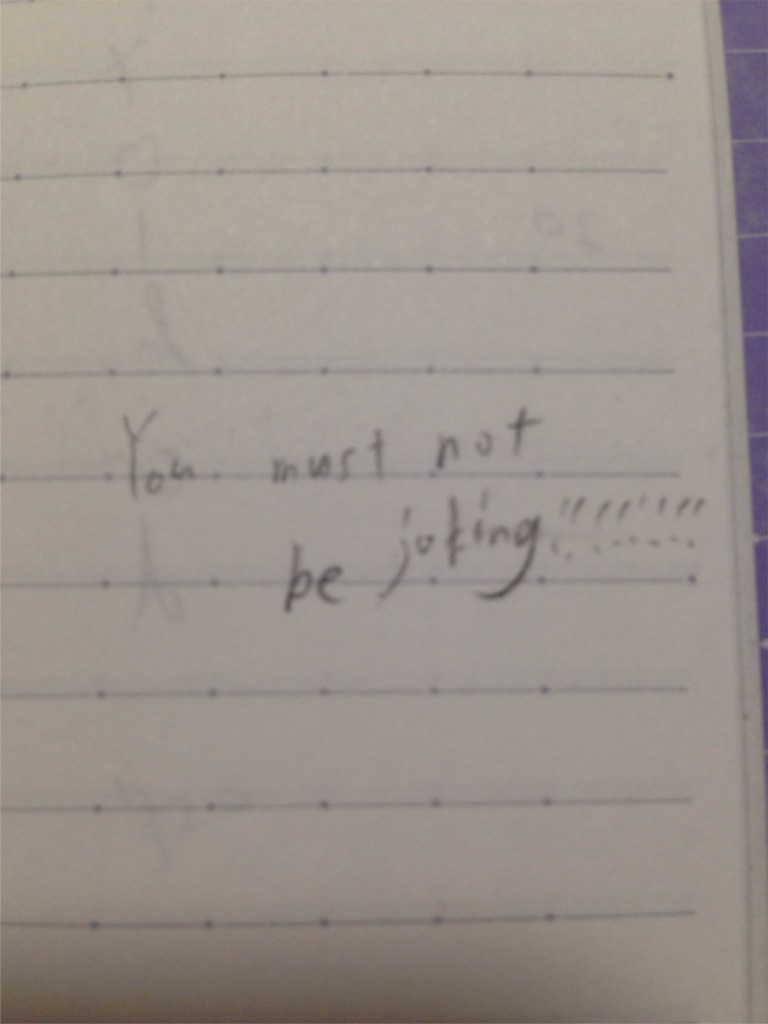 You must not
be joking!!!!!!!!